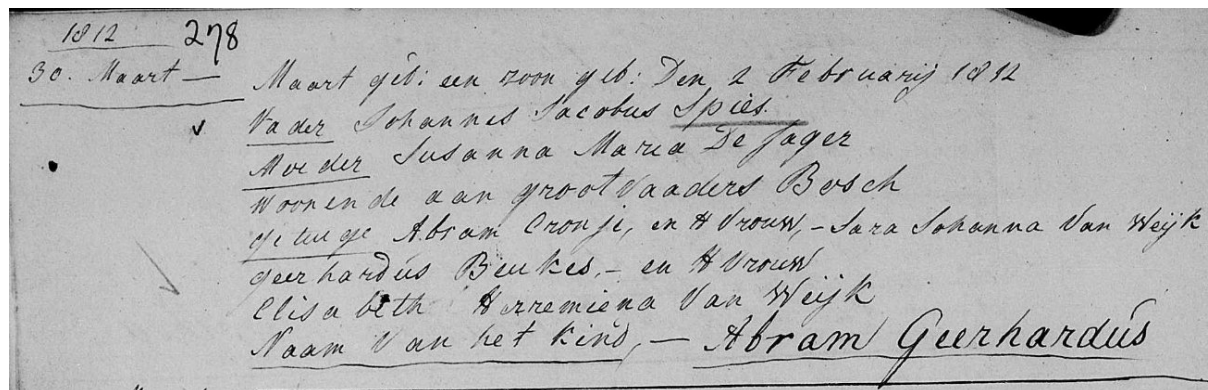 1812 278
30. Maart — Maart geb: een zoon geb: Den 2 Februarij 1812
Vader Johannes Jacobus Spies.
Moeder Susanna Maria De Jager
Woonende aan grootVaaders Bosch
getuige Abram Cronje, en H Vrouw, - Sara Johanna Van Weijk
geerhardus Beukes, - en H Vrouw
Elisabeth Herremiena Van Weijk
Naam Van het kind, — Abram Geerhardus